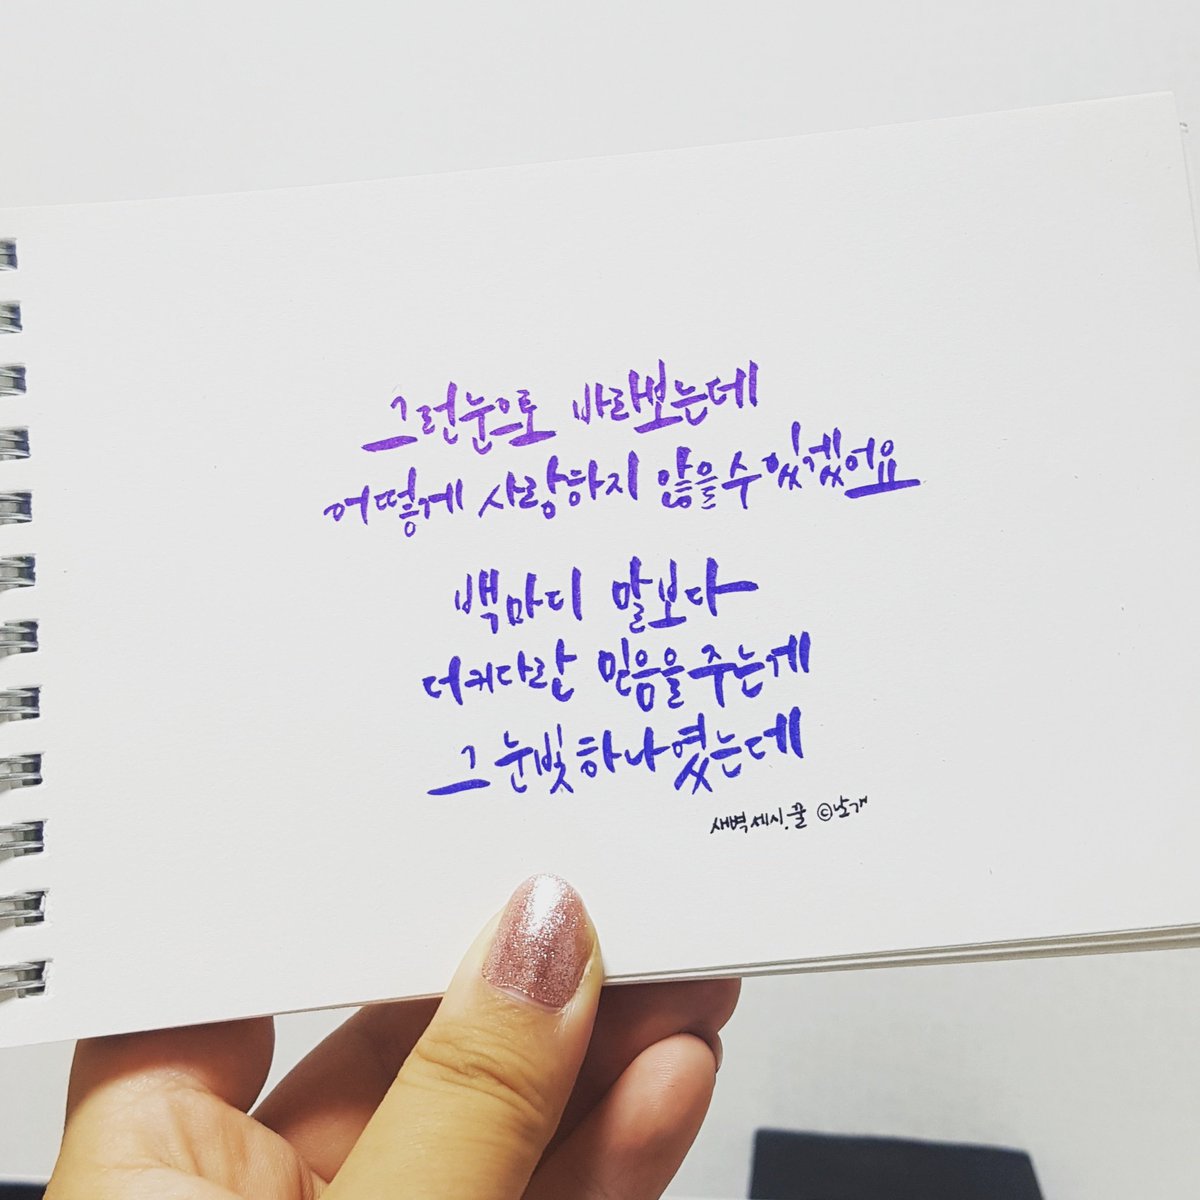 그런눈으로 바라보는데
어떻게 사랑하지 않을수있겠어요
백마디 말보다
더커다란 믿음을주는게
그 눈빛하나였는데
새벽세시.꿀 ©날개